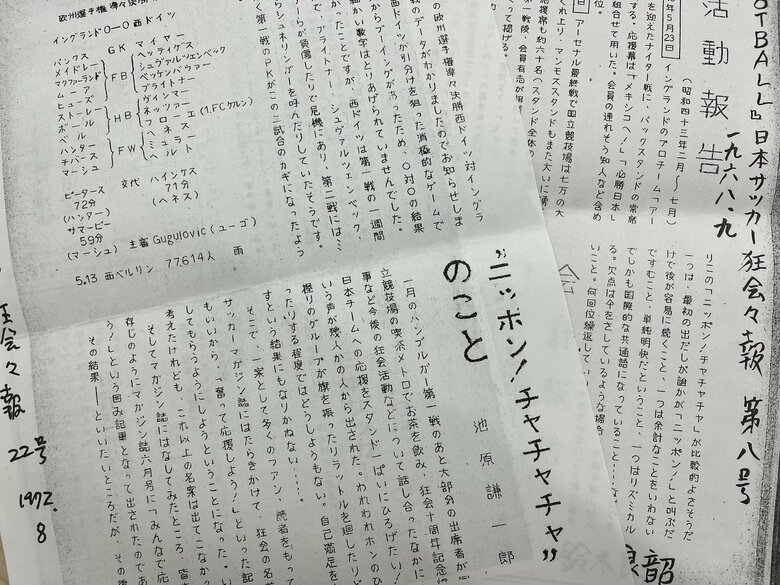 OTBALL』日本サッカー狂会々報 第八号
一九六八.九
活動報告
(昭和四十三年二月~七月)
年5月23日
イングランドのプロチーム「アー
を迎えたナイター戦に、バックスタンドの常席
する。応援幕は「メキシコへ!」「必勝日本」
組合せて用いた。会員の連れそう知人など含め
回 アーセナル最終戦で国立競技場は七万の大
リこの「ニッポン!チャチャチャ」が比較的よさそうだ
一つは、最初の出だしが誰かが「ニッポン!」と叫ぶだ
けで後が容易に続くこと、一つは余計なことをいわない
ですむこと、単純明快だということ、一つはリズミカル
でしかも国際的な共通語になっていること……よ
る。欠点は今をさしているような場合
いこと。何回位繰返してい
欧州選手権準々決勝
イングランド0-0西ドイツ
GK
FB
HB
FW
バンクス
メイドレー
マクファーランド
ムーア
ヒューズ
ストーレー
ボール
ベル
ハンター
チバース
マーシュ
マイヤー
ヘッティゲス
シュヴァルツェンベック
ベッケンバウアー
ブライトナー
ヴィンマー
ネッツァー
ヘーネス
(1.FCケルン)
ミュラー
ヘルト
交代
ピータース
72分
(ハンター)
サマービー
59分
(マーシュ)
ハインケス
71分
(ヘネス)
主審 Gugulovic (ユーゴ)
5.13 西ベルリン 77,614人 雨
の欧州選手権準々決勝西ドイツ対イングラ
のデータがわかりましたのでお知らせしま
西ドイツが引分けを狙った消極的なゲームで
からブーイングがあったため、〇対〇の結果
かい数字はとりあげられていませんでした。
かったことですが、西ドイツは第一戦の一週間
、ブライトナー、シュヴァルツェンベック、
らが負傷したりで危機にあり、第二戦には…
シュネリンガーを呼んだりしていたそうです。
く第一戦のPKがこの二試合のカギになったよう
"ニッポン!チャチャチャ"
のこと
池原謙一郎
一月のハンブルガー第一戦のあと大部分の出席者が
立競技場の喫茶メトロでお茶を飲み、狂会十周年記念行
事など今後の狂会活動などについて話し合ったなかに
日本チームへの応援をスタンド一ぱいにひろげたい!
いう声が幾人かの人から出された。われわれホンのひ
握りのグループが旗を振ったりラットルを廻したりど
ったりする程度ではどうしようもない。自己満足を
すという結果にもなりかねない……。
そこで、一案として多くのファン、読者をもって
サッカーマガジン誌にはたらきかけて、狂会の名
もいいから、「奮って応援しよう!」といった記
してもらうようにしようということになった。い
考えたけれども、これ以上の名案は出てこなかっ
そしてマガジン誌にはなしてみたところ、皆
存じのようにマガジン誌六月号に「みんなで応
う!」という囲み記事となって出されたのであ
その結果――といいたいところだが、その後
狂会々報 22号 1972.8